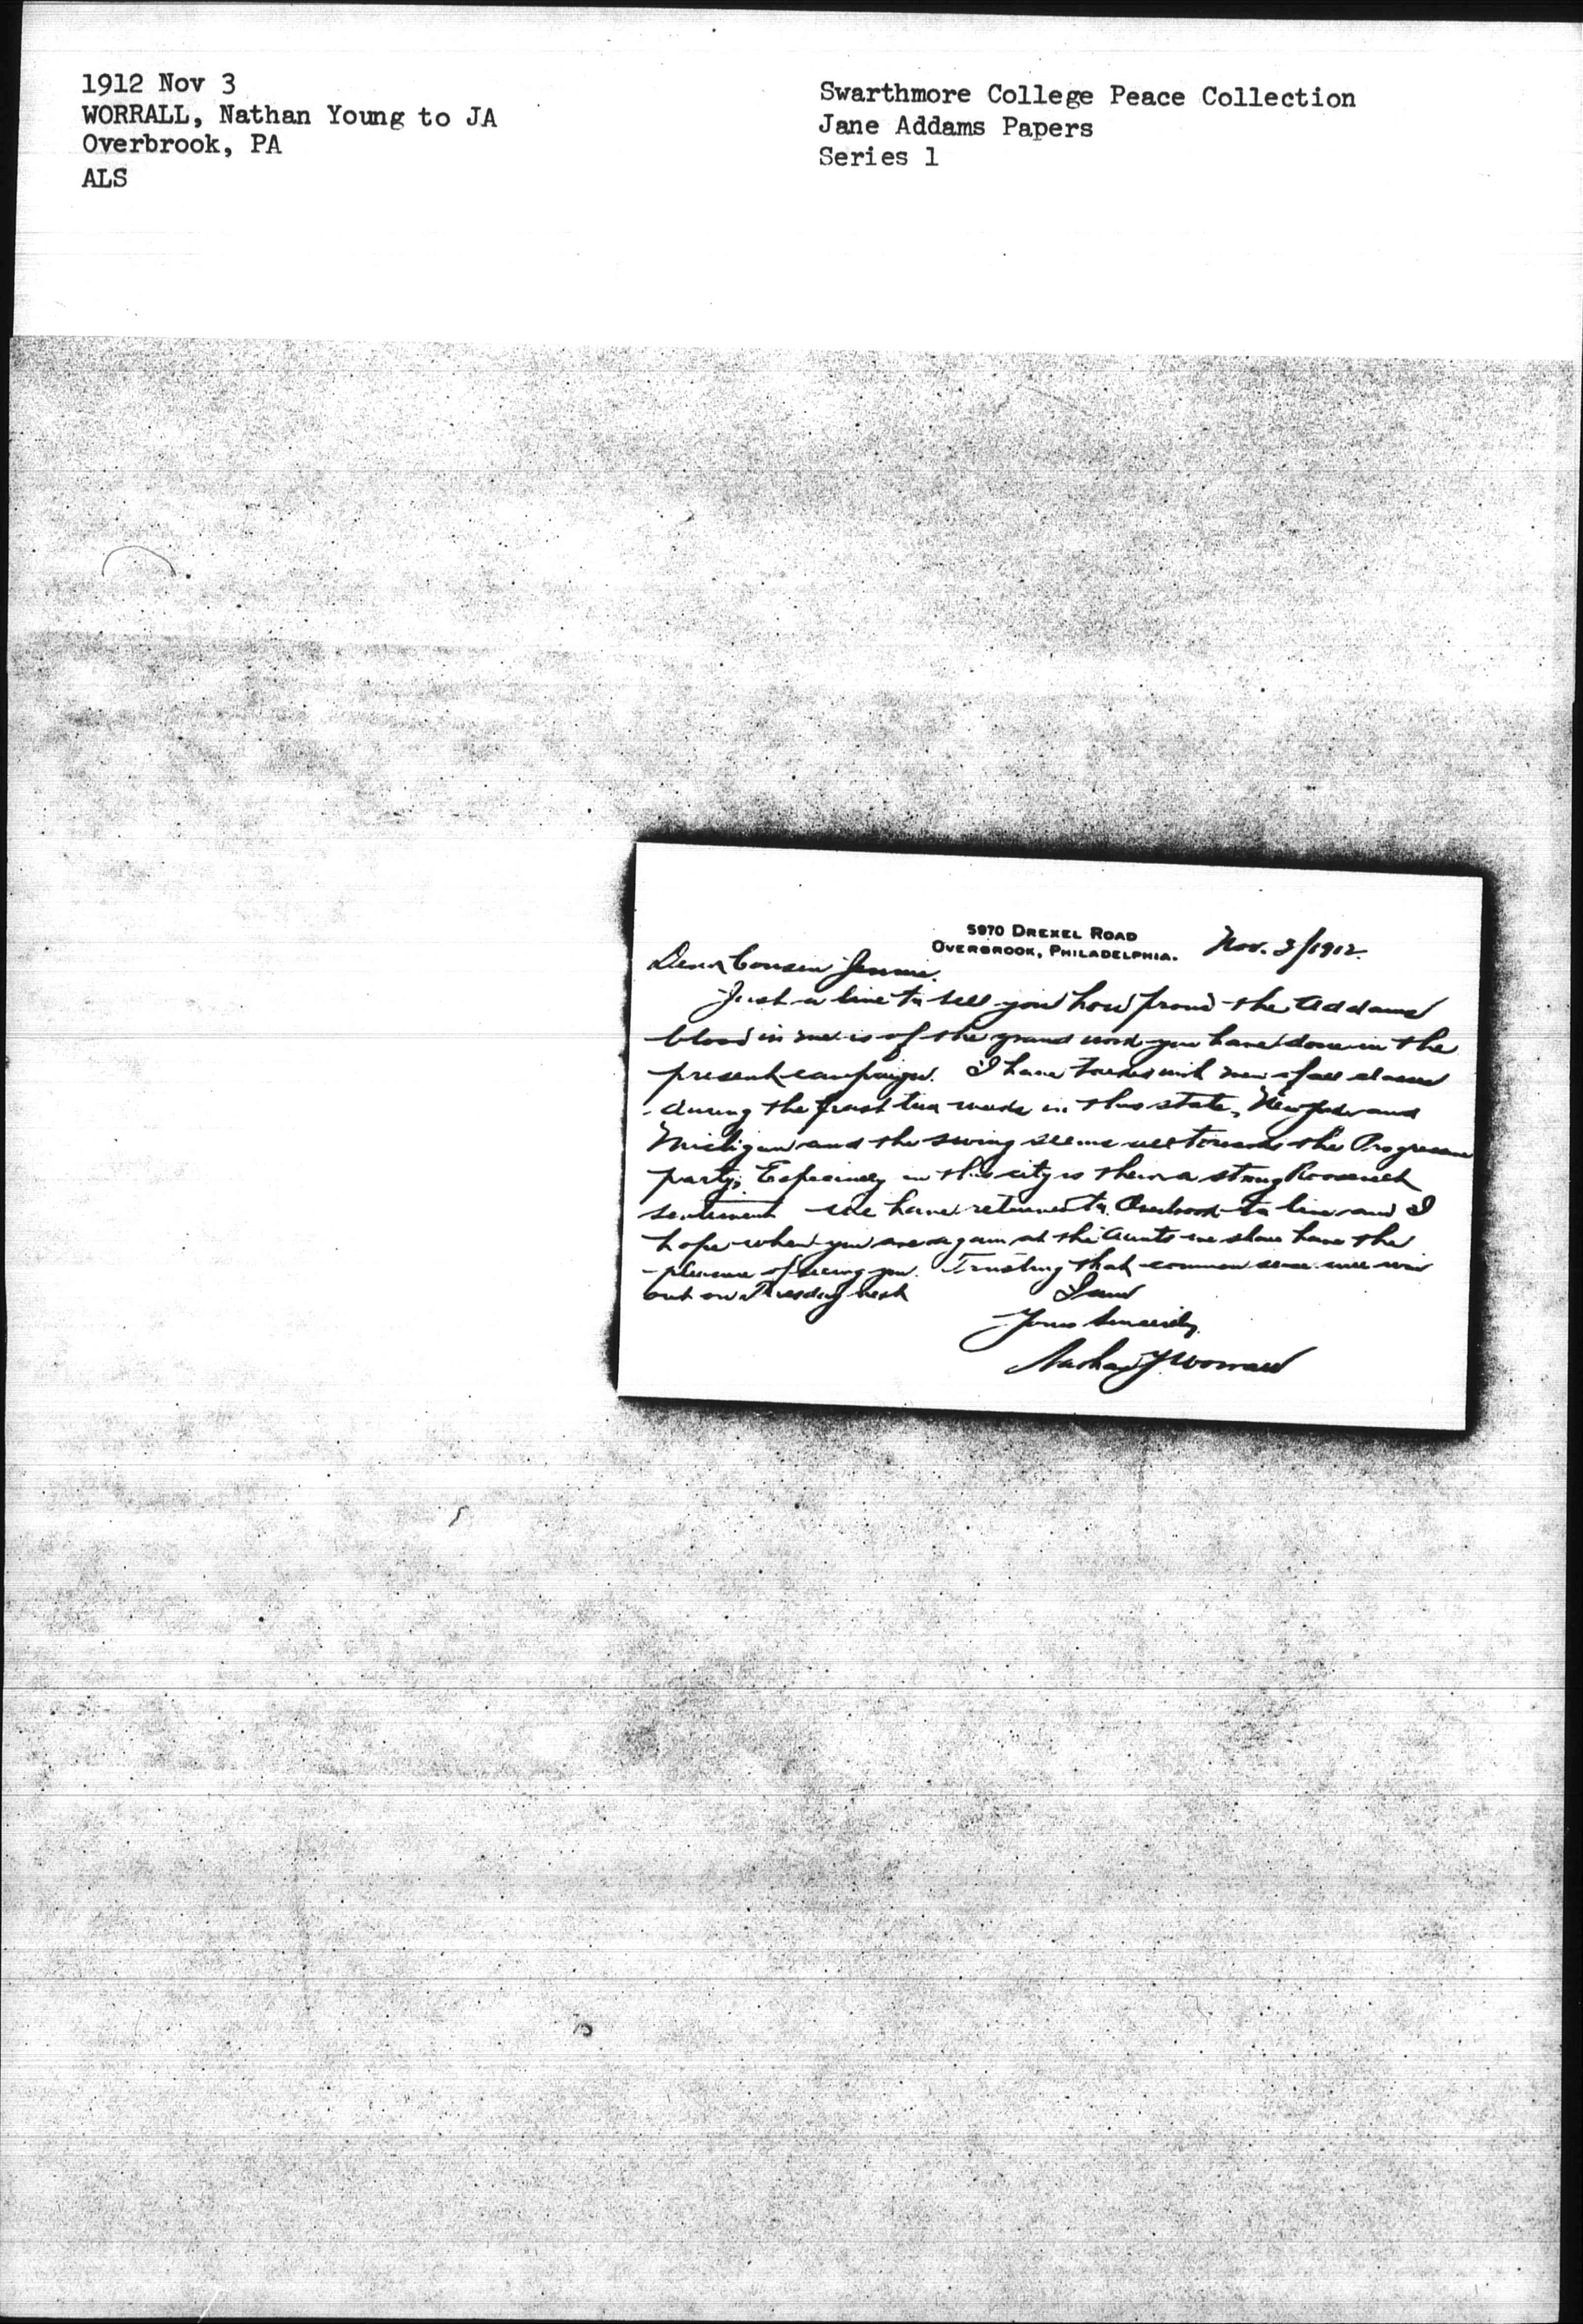 1912 Nov 3
WORRALL, Nathan Young to JA
Overbrook, PA
ALS
Swarthmore College Peace Collection
Jane Addams Papers
Series 1
5970 DREXEL ROAD
OVERBROOK, PHILADELPHIA.
Nov. 3/1912.
Dear Cousin Jennie.
Just a line to tell you how proud the Addams
blood in me is of the grand work you have done in the
present campaign. I have talked with men of all classes
during the past two weeks in this state, New York and
Michigan and the swing seems all towards the Progressive
party. Especially in this city is there a strong Roosevelt
sentiment we have returned to Overbrook to live and I
hope when you are again at the Aunts we shall have the
pleasure of seeing you. Trusting that common sense will win
out on Tuesday next
I am
Yours Sincerely,
Nathan Y. Worrall